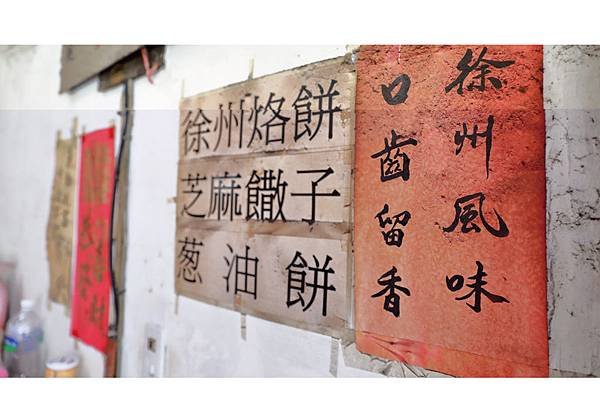 徐州烙餅
芝麻饊子
葱油餅
徐州風味
口齒留香